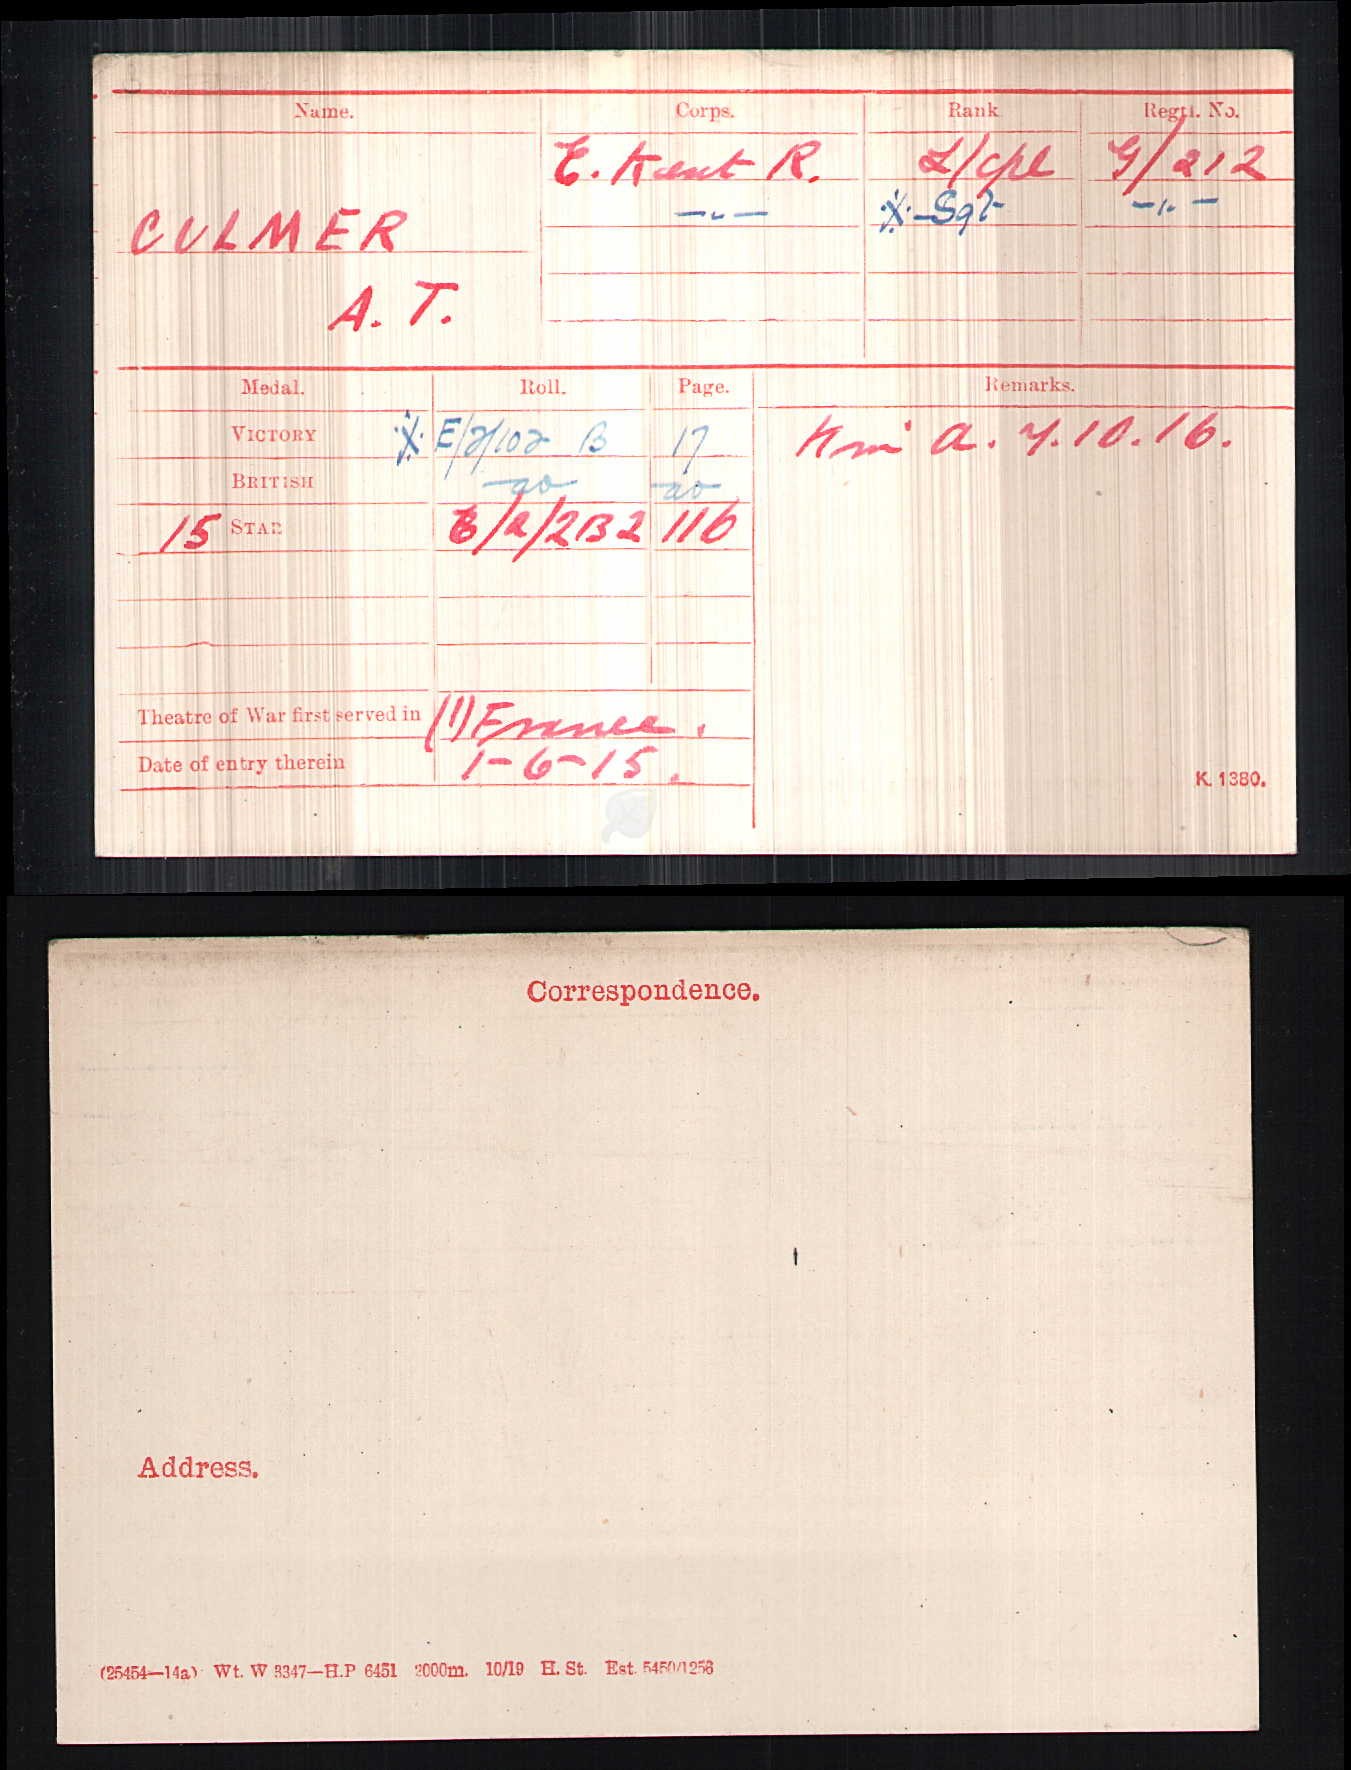 Name. Corps. Rank Regtl. No.
E. Kent R. L/Cpl G/212
CULMER —"— ※ -Sgt- —"—
A. T.
Medal. Roll. Page. Remarks.
VICTORY ※ E/2/102 B 17 K in A. 7.10.16.
BRITISH —do— —do—
15 STAR E/2/2B2 116
Theatre of War first served in (1) France.
Date of entry therein 1-6-15.
K. 1380.
Correspondence.
Address.
(25454—14a) Wt. W 3347—H.P 6451 2000m. 10/19 H. St. Est. 5450/1256